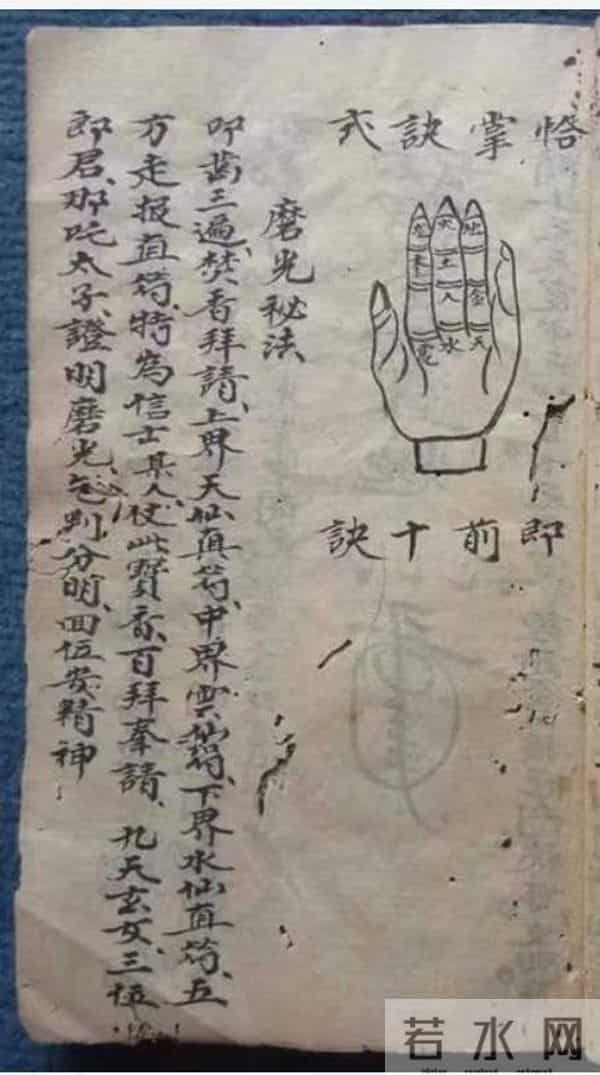 恪掌訣式
地 火 龙
土
金 人
天 水
即前十訣
磨光秘法
叩齒三遍、焚香拜請、上界天仙直符、中界雲仙直符、下界水仙直符、五
方走报直符、特為信士某人、使此寶香、百拜奉請、九天玄女、三位
郎君、那吒太子、證明磨光、乞判分明、四位發精神
若水网